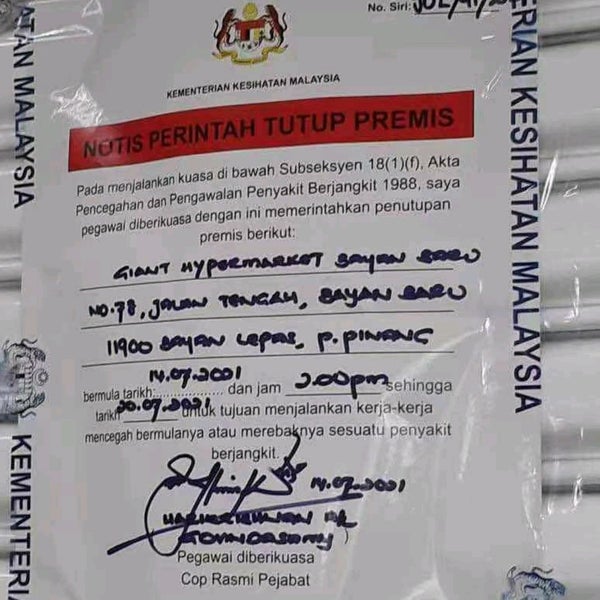 No. Siri:
KEMENTERIAN KESIHATAN MALAYSIA
NOTIS PERINTAH TUTUP PREMIS
Pada menjalankan kuasa di bawah Subseksyen 18(1)(f), Akta
Pencegahan dan Pengawalan Penyakit Berjangkit 1988, saya
pegawai diberikuasa dengan ini memerintahkan penutupan
premis berikut:
GIANT HYPERMARKET BAYAN BARU
NO.78, JALAN TENGAH, BAYAN BARU
11900 BAYAN LEPAS, P.PINANG
bermula tarikh: 14.07.2021 dan jam 2.00pm sehingga
tarikh 20.07.2021 untuk tujuan menjalankan kerja-kerja
mencegah bermulanya atau merebaknya sesuatu penyakit
berjangkit.
14.07.2021
Pegawai diberikuasa
Cop Rasmi Pejabat
ATAN MALAYSIA
KEMENTERI
ERIAN KESIHATAN MALAYSIA